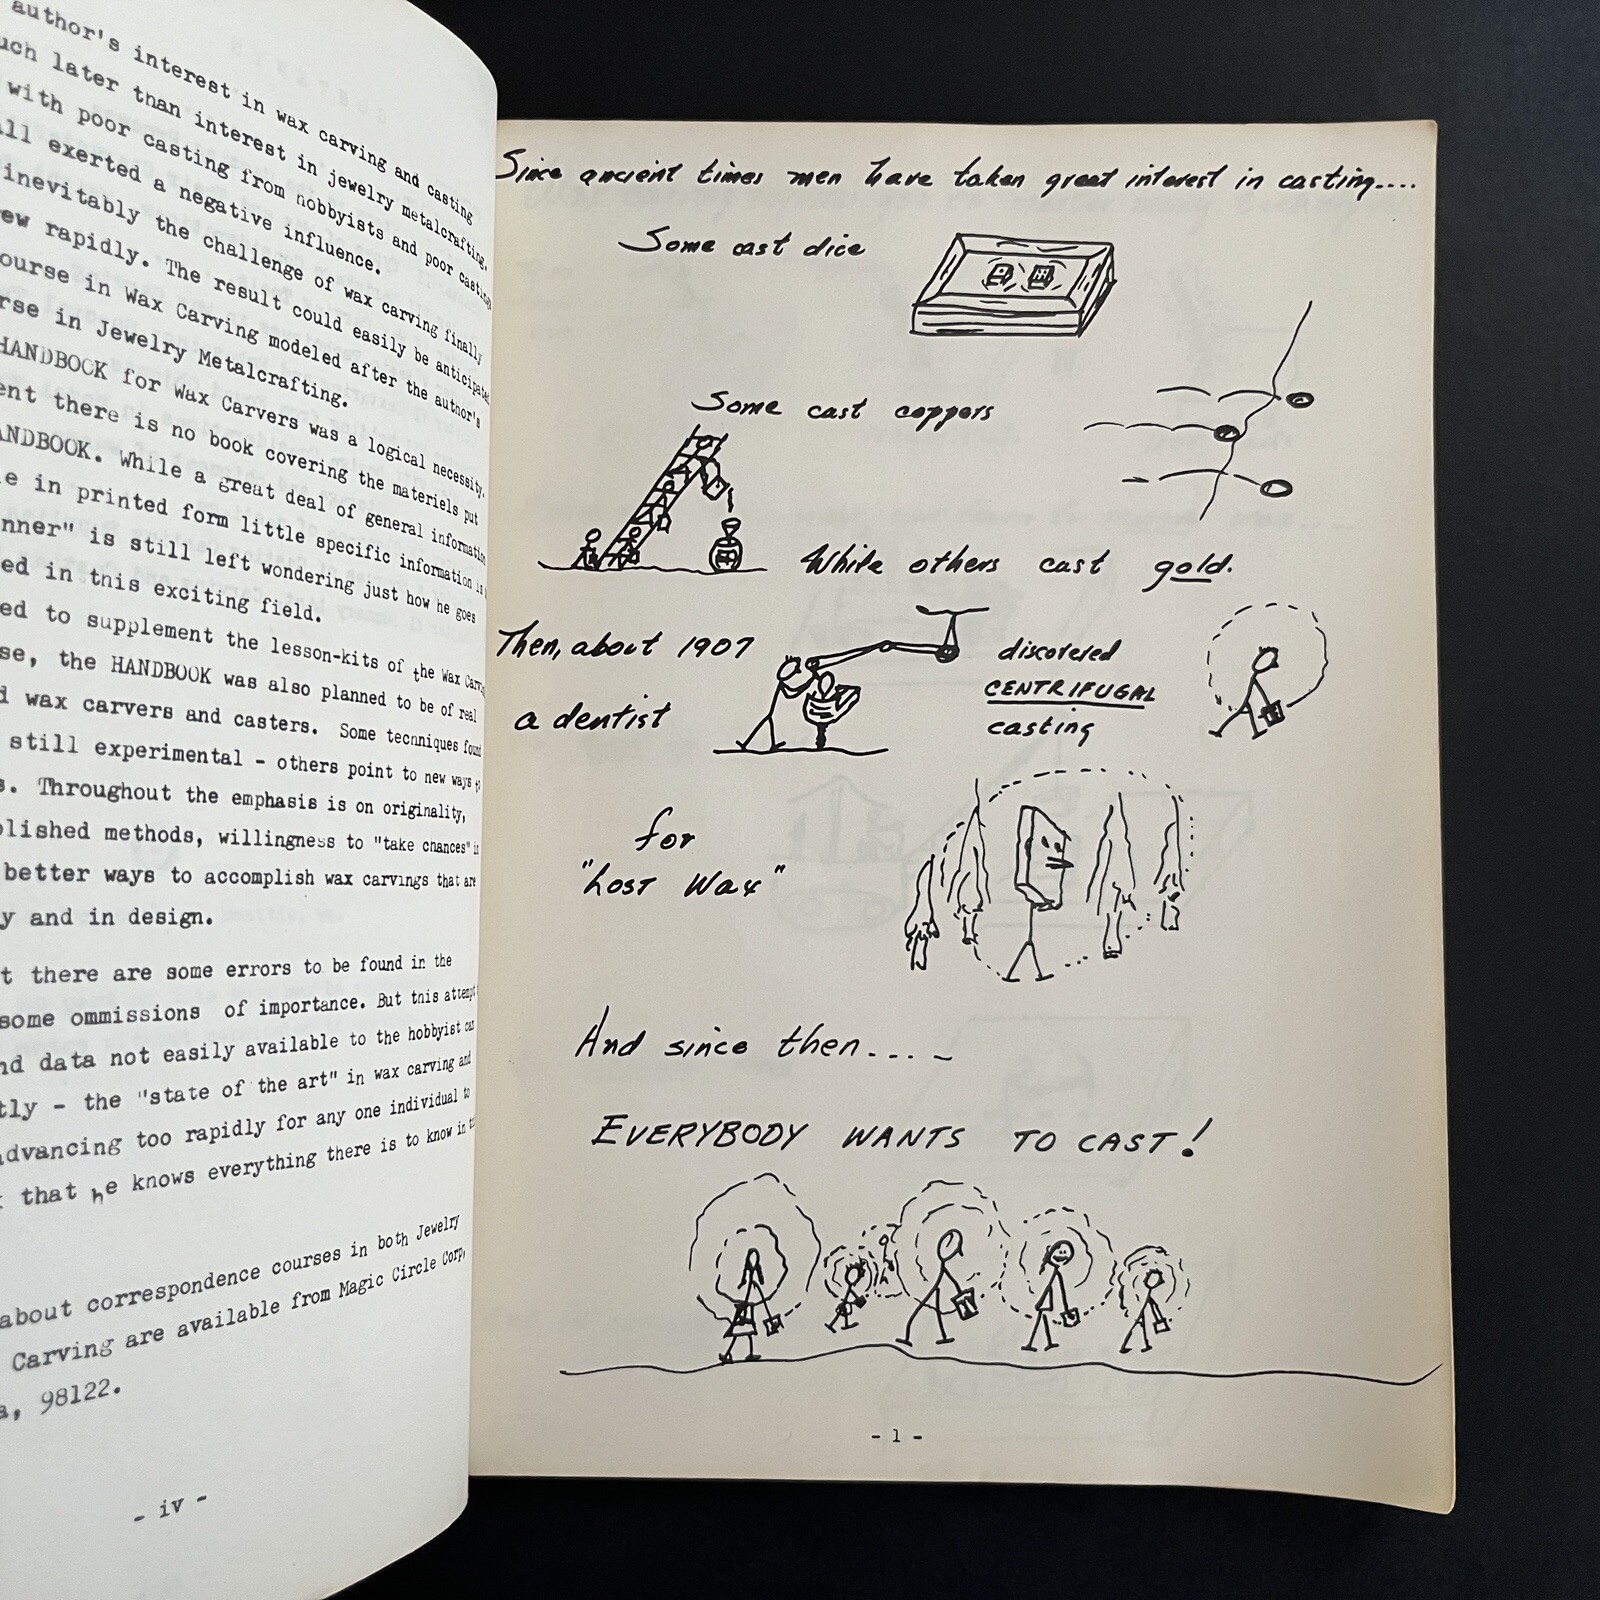 author's interest in wax carving and casting
later than interest in jewelry metalcrafting.
with poor casting from hobbyists and poor castings
exerted a negative influence.
inevitably the challenge of wax carving finally
rapidly. The result could easily be anticipated
in Wax Carving modeled after the author's
in Jewelry Metalcrafting.
HANDBOOK for Wax Carvers was a logical necessity.
there is no book covering the materiels put
HANDBOOK. While a great deal of general information
in printed form little specific information is
is still left wondering just how he goes
in this exciting field.
to supplement the lesson-kits of the Wax Carving
the HANDBOOK was also planned to be of real
wax carvers and casters. Some techniques found
still experimental - others point to new ways to
Throughout the emphasis is on originality,
methods, willingness to "take chances"
better ways to accomplish wax carvings that are
and in design.
there are some errors to be found in the
some ommissions of importance. But this attempt
data not easily available to the hobbyist can
- the "state of the art" in wax carving and
advancing too rapidly for any one individual to
that he knows everything there is to know in
about correspondence courses in both Jewelry
Carving are available from Magic Circle Corp,
98122.
- iv -
Since ancient times men have taken great interest in casting....
Some cast dice
Some cast coppers
While others cast gold.
Then, about 1907
a dentist
discovered
CENTRIFUGAL
casting
for
"Lost Wax"
And since then....
EVERYBODY WANTS TO CAST!
- 1 -